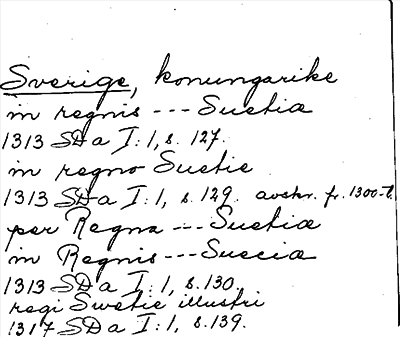 Sverige, konungarike
in regnis --- Suetiæ
1313 SD a I:1, s. 127.
in regno Suetie
1313 SD a I:1, s. 129. avskr. fr. 1300-t.
per Regna --- Suetiæ
in Regnis --- Sueciæ
1313 SD a I:1, s. 130.
regi Swetie illustri
1317 SD a I:1, s. 139.